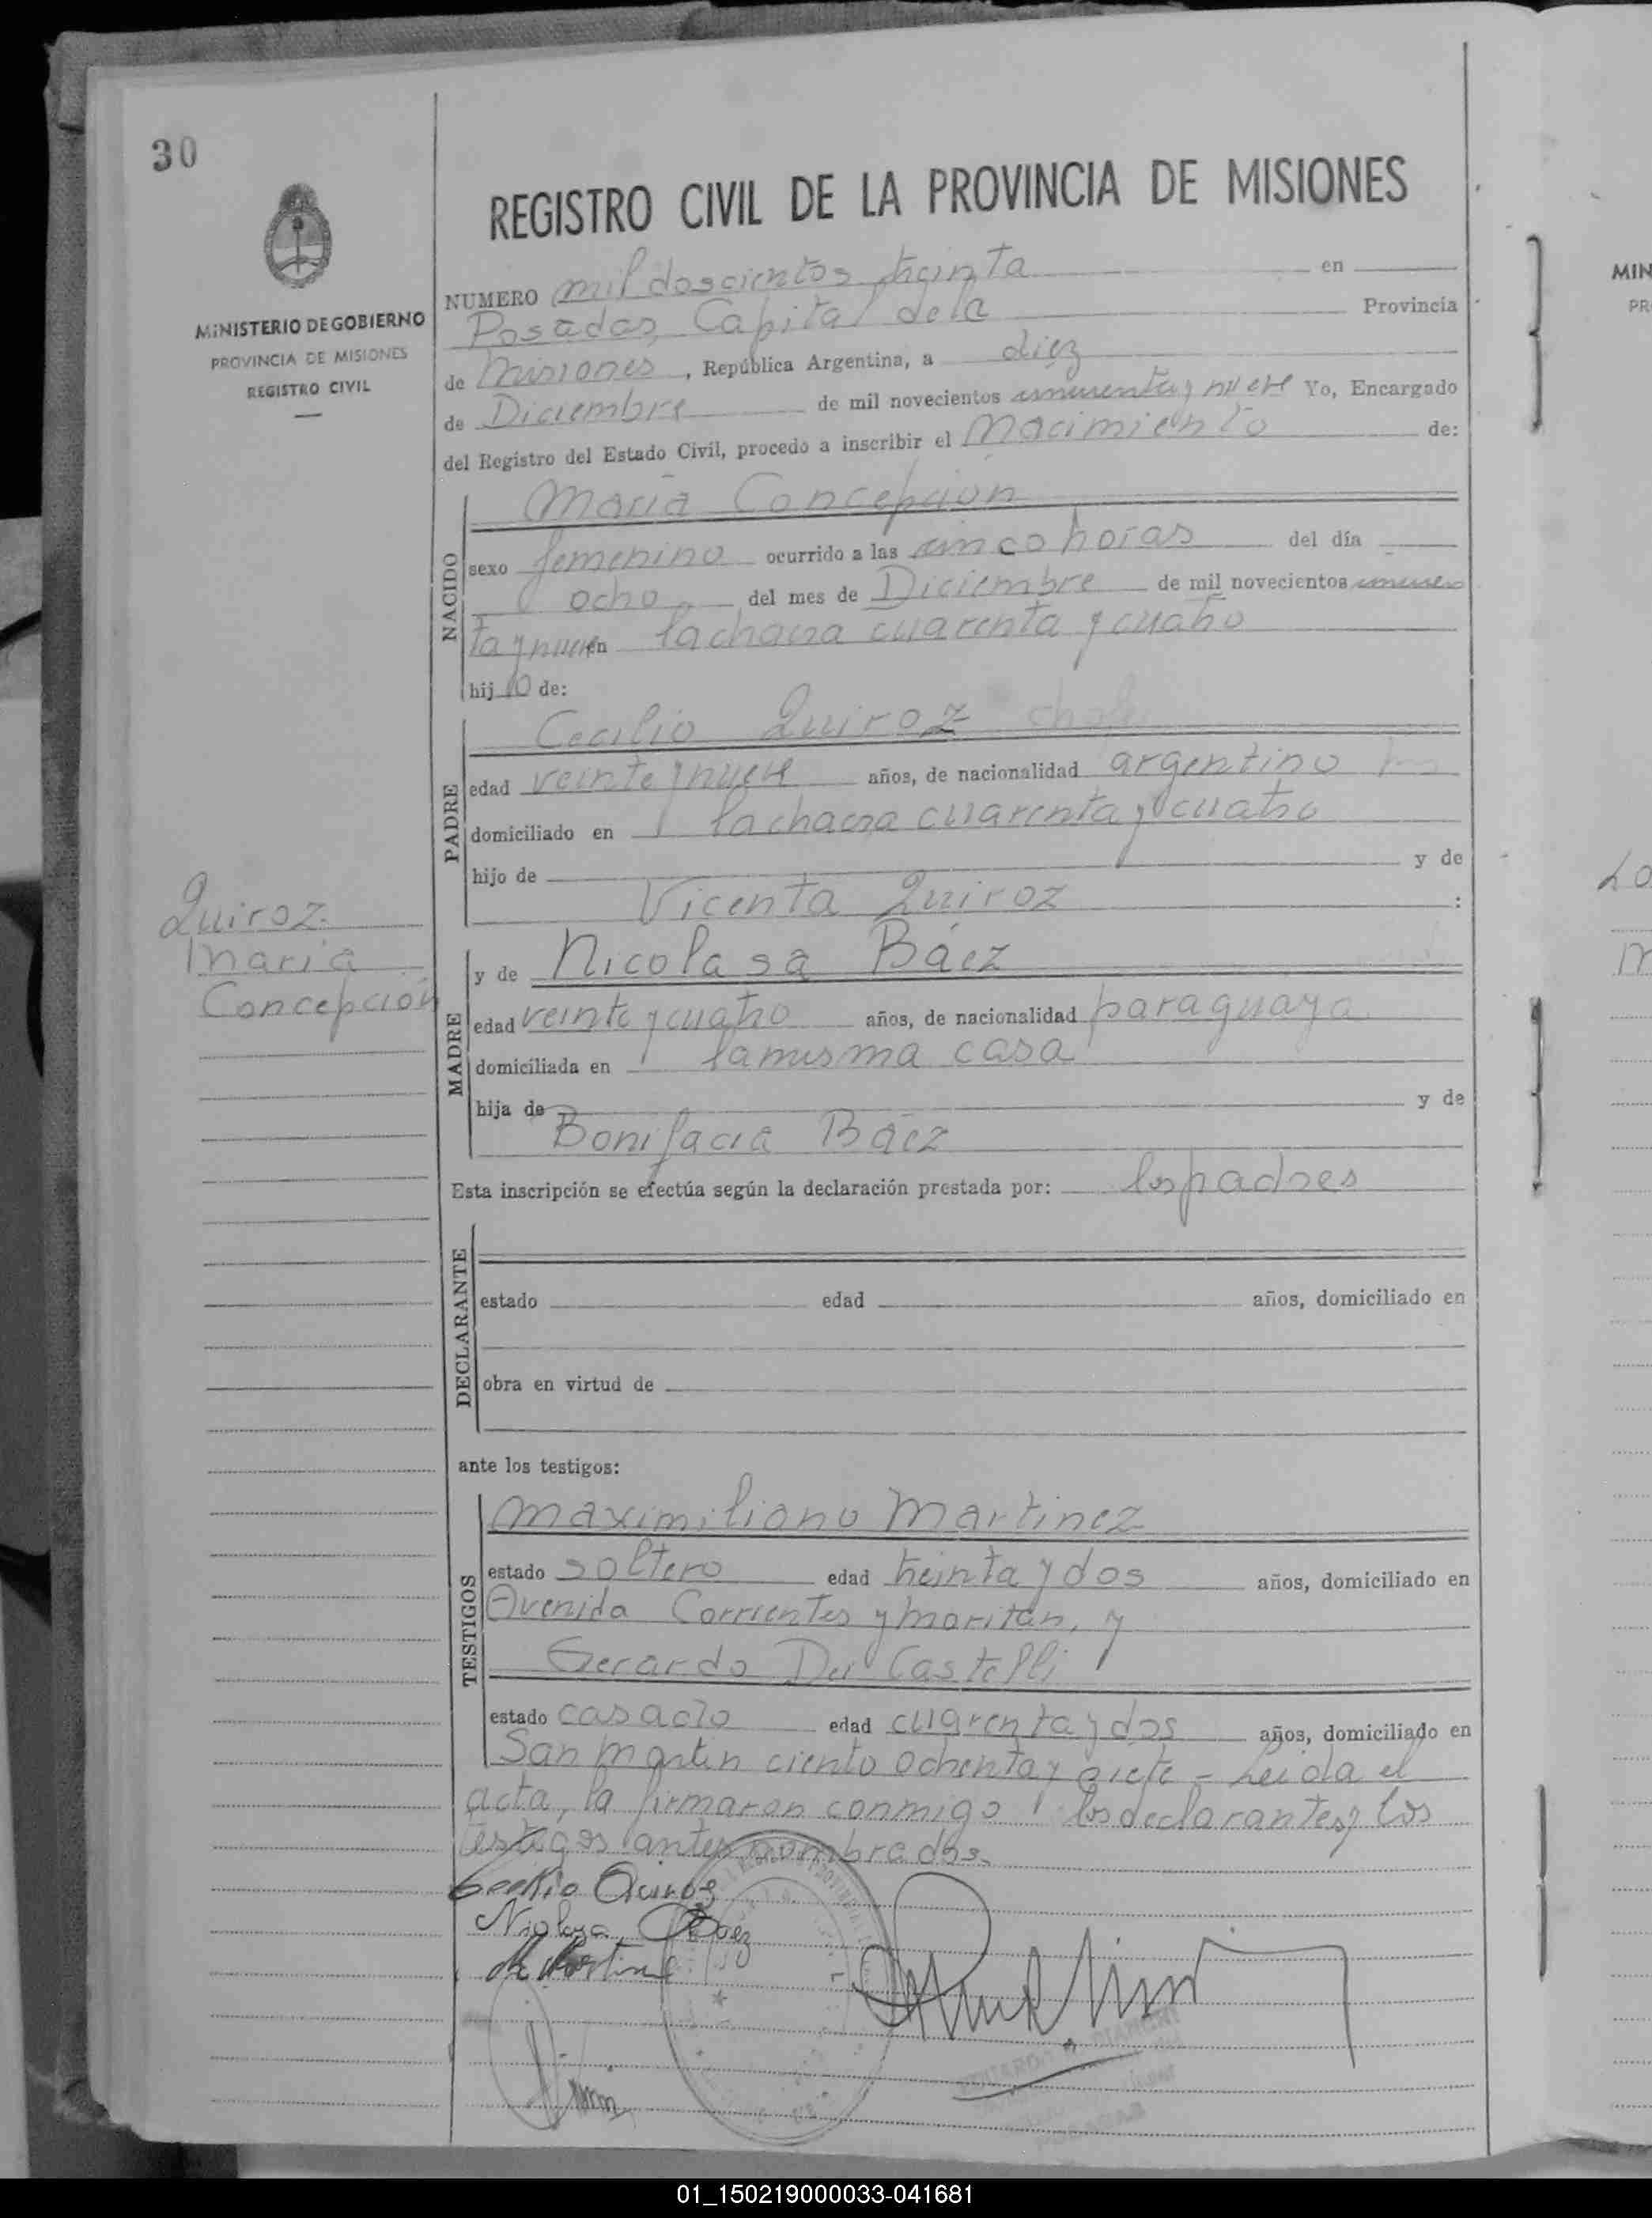 30
REGISTRO CIVIL DE LA PROVINCIA DE MISIONES
MINISTERIO DE GOBIERNO
PROVINCIA DE MISIONES
REGISTRO CIVIL
NUMERO mil doscientos treinta en
Posadas, Capital de la Provincia
de Misiones, República Argentina, a diez
de Diciembre de mil novecientos cincuenta y nueve Yo, Encargado
del Registro del Estado Civil, procedo a inscribir el Nacimiento de:
NACIDO
Maria Concepción
sexo femenino ocurrido a las cinco horas del día
ocho del mes de Diciembre de mil novecientos cincuen
ta y nueve en la chacra cuarenta y cuatro
hij o de:
PADRE
Cecilio Quiroz
edad veinte y nueve años, de nacionalidad argentino
domiciliado en la chacra cuarenta y cuatro
hijo de y de
Vicenta Quiroz :
Quiroz
Maria
Concepción
MADRE
y de Nicolasa Báez
edad veinte y cuatro años, de nacionalidad paraguaya
domiciliada en la misma casa
hija de y de
Bonifacia Báez
Esta inscripción se efectúa según la declaración prestada por: los padres
DECLARANTE
estado edad años, domiciliado en
obra en virtud de
ante los testigos:
TESTIGOS
Maximiliano Martinez
estado soltero edad treinta y dos años, domiciliado en
Avenida Corrientes y Moritán, y
Gerardo Del Castelli
estado casado edad cuarenta y dos años, domiciliado en
San Martin ciento ochenta y siete - Leida el
acta, la firmaron conmigo los declarantes y los
testigos antes nombrados.
Cecilio Quiroz
Nicolasa Baez
M. Martinez
MIN
PR
Lo
M
01_150219000033-041681